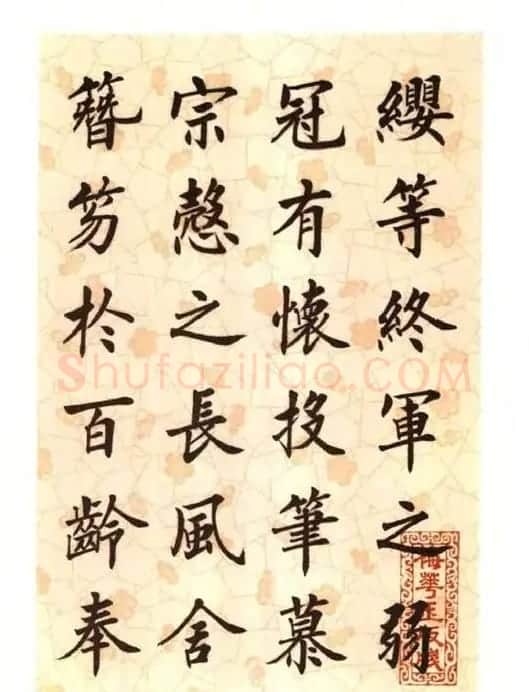 纓等終軍之弱
冠有懷投筆慕
宗慤之長風舍
簪笏於百齡奉
Shufaziliao.COM
梅華玉版